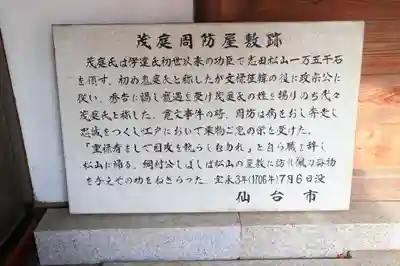 茂庭周防屋敷跡
茂庭氏は伊達氏初世以来の功臣で志田松山一万五千石
を領す、初め鬼庭氏と称したが文禄征韓の役に政宗公に
従い、秀吉に謁し寵遇を受け茂庭氏の姓を賜りのち代々
茂庭氏と称した、寛文事件の時、周防は病をおし奔走し
忠誠をつくし江戸において乗物ご免の栄を受けた。
「重臣者をして国政を執らしむ勿れ」と自ら職を辞し
松山に帰る、綱村公しばしば松山の屋敷に訪れ佩刀各物
を与えその功をねぎらった、宝永3年(1706年)7月6日没
仙台市